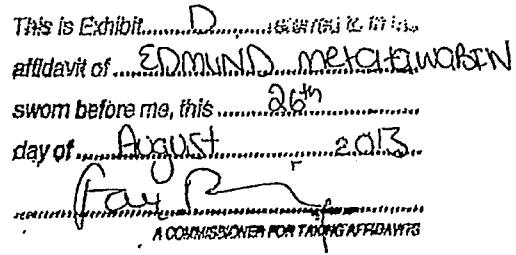 This is Exhibit..........D..........referred to in the
affidavit of ....EDMUND metatawabin
sworn before me, this ..........26th..........
day of ....August..........2013....
A COMMISSIONER FOR TAKING AFFIDAVITS